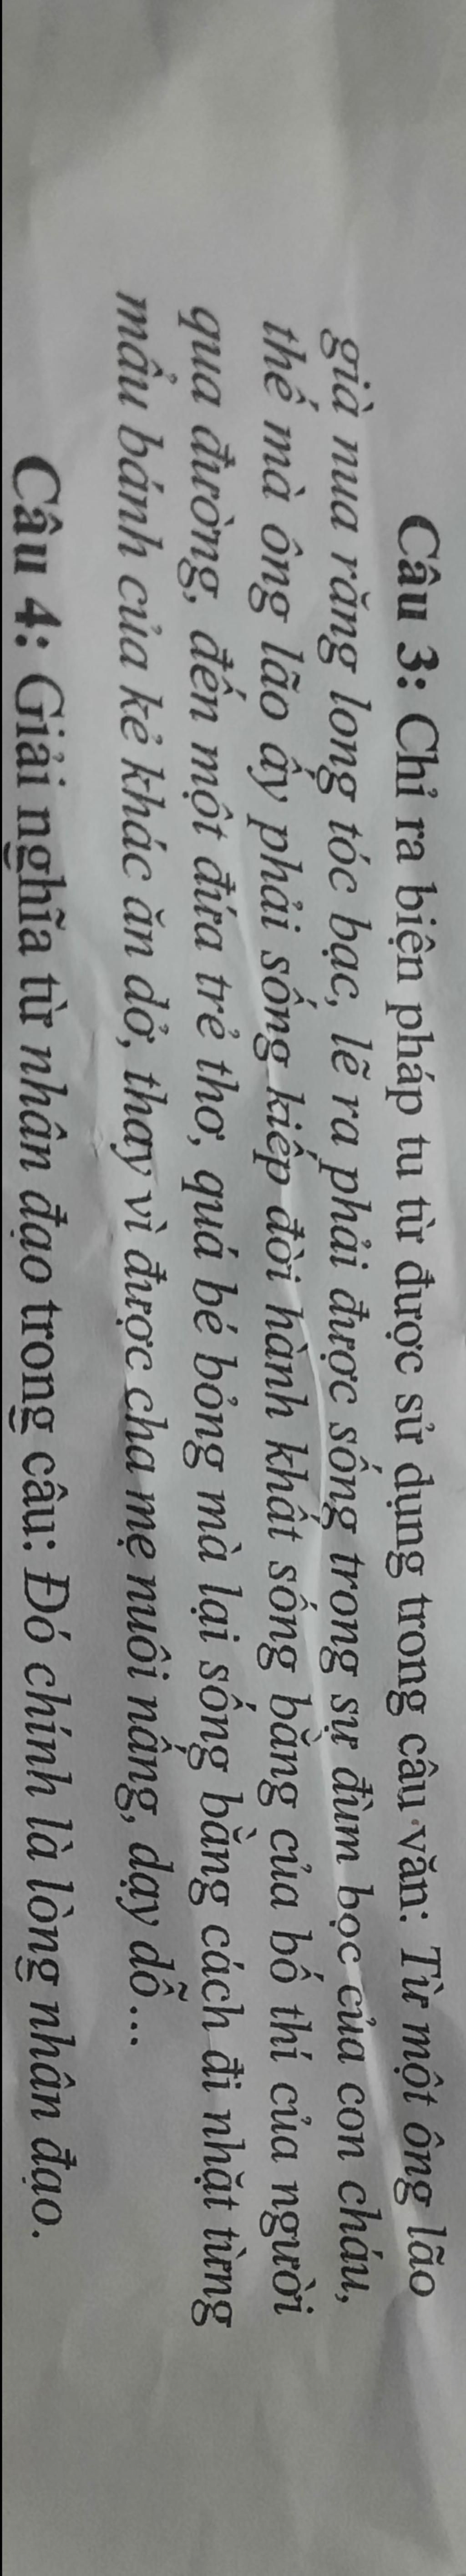 Câu 3: Chỉ ra biện pháp tu từ được sử dụng trong câu văn: Từ một ông lão
già nua răng long tóc bạc, lẽ ra phải được sống trong sự đùm bọc của con cháu,
thế mà ông lão ấy phải sống kiếp đời hành khất sống bằng của bố thí của người
qua đường, đến một đứa trẻ thơ, quá bé bỏng mà lại sống bằng cách đi nhặt từng
mẩu bánh của kẻ khác ăn dở, thay vì được cha mẹ nuôi nấng, dạy dỗ...
Câu 4: Giải nghĩa từ nhân đạo trong câu: Đó chính là lòng nhân đạo.